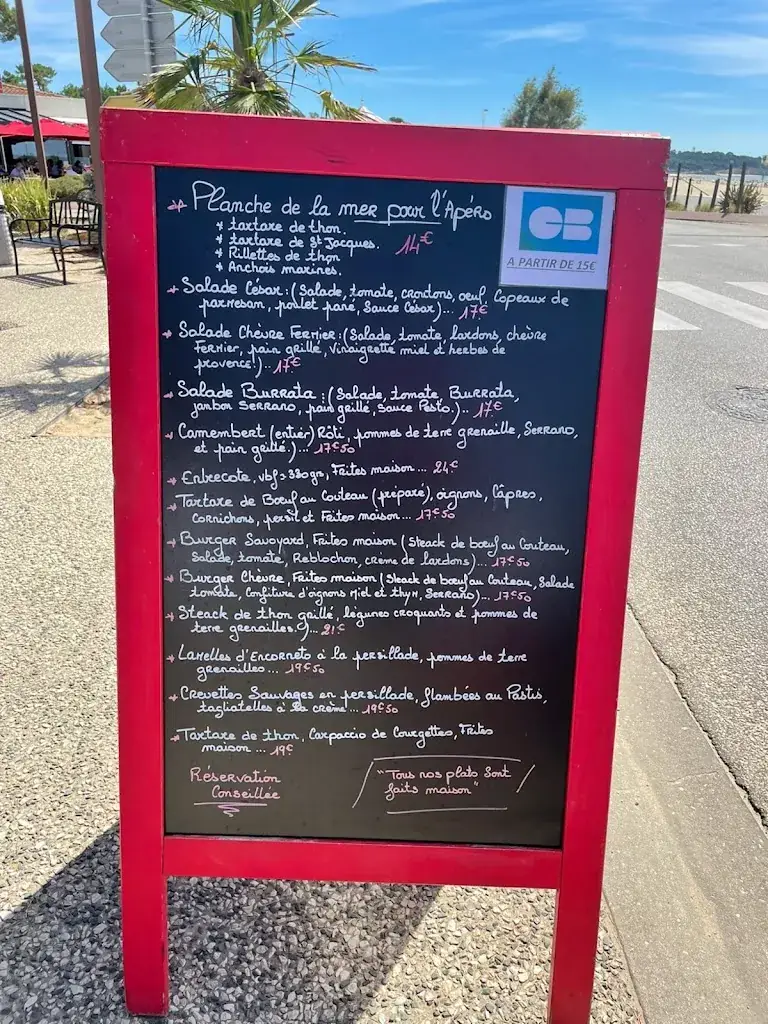 Planche de la mer pour l'Apéro
* tartare de thon.
* tartare de St Jacques.
14€
* Rillettes de thon
* Anchois marinés.
CB
A PARTIR DE 15€
Salade César : (Salade, tomate, croûtons, oeuf, Copeaux de
parmesan, poulet pané, Sauce César)... 17€
Salade Chèvre Fermier : (Salade, tomate, lardons, chèvre
Fermier, pain grillé, vinaigrette miel et herbes de
provence)... 17€
Salade Burrata : (Salade, tomate, Burrata,
jambon Serrano, pain grillé, Sauce Pesto.)... 17€
Camembert (entier) Rôti, pommes de terre grenaille, Serrano,
et pain grillé.)... 17€50
Entrecote, vbf ≈ 330grs, Frites maison... 24€
Tartare de Bœuf au Couteau (préparé), oignons, Câpres,
Cornichons, persil et Frites maison... 17€50
Burger Savoyard, Frites maison (Steack de bœuf au Couteau,
Salade, tomate, Reblochon, crème de lardons)... 17€50
Burger Chèvre, Frites maison (Steack de bœuf au Couteau, Salade
tomate, Confiture d'oignons Miel et thym, Serrano)... 17€50
Steack de thon grillé, légumes croquants et pommes de
terre grenailles.)... 21€
Lamelles d'Encornets à la persillade, pommes de terre
grenailles... 19€50
Crevettes Sauvages en persillade, flambées au Pastis,
tagliatelles à la crème... 19€50
Tartare de thon, Carpaccio de Courgettes, Frites
maison... 19€
Réservation
Conseillée
"Tous nos plats Sont
faits maison"